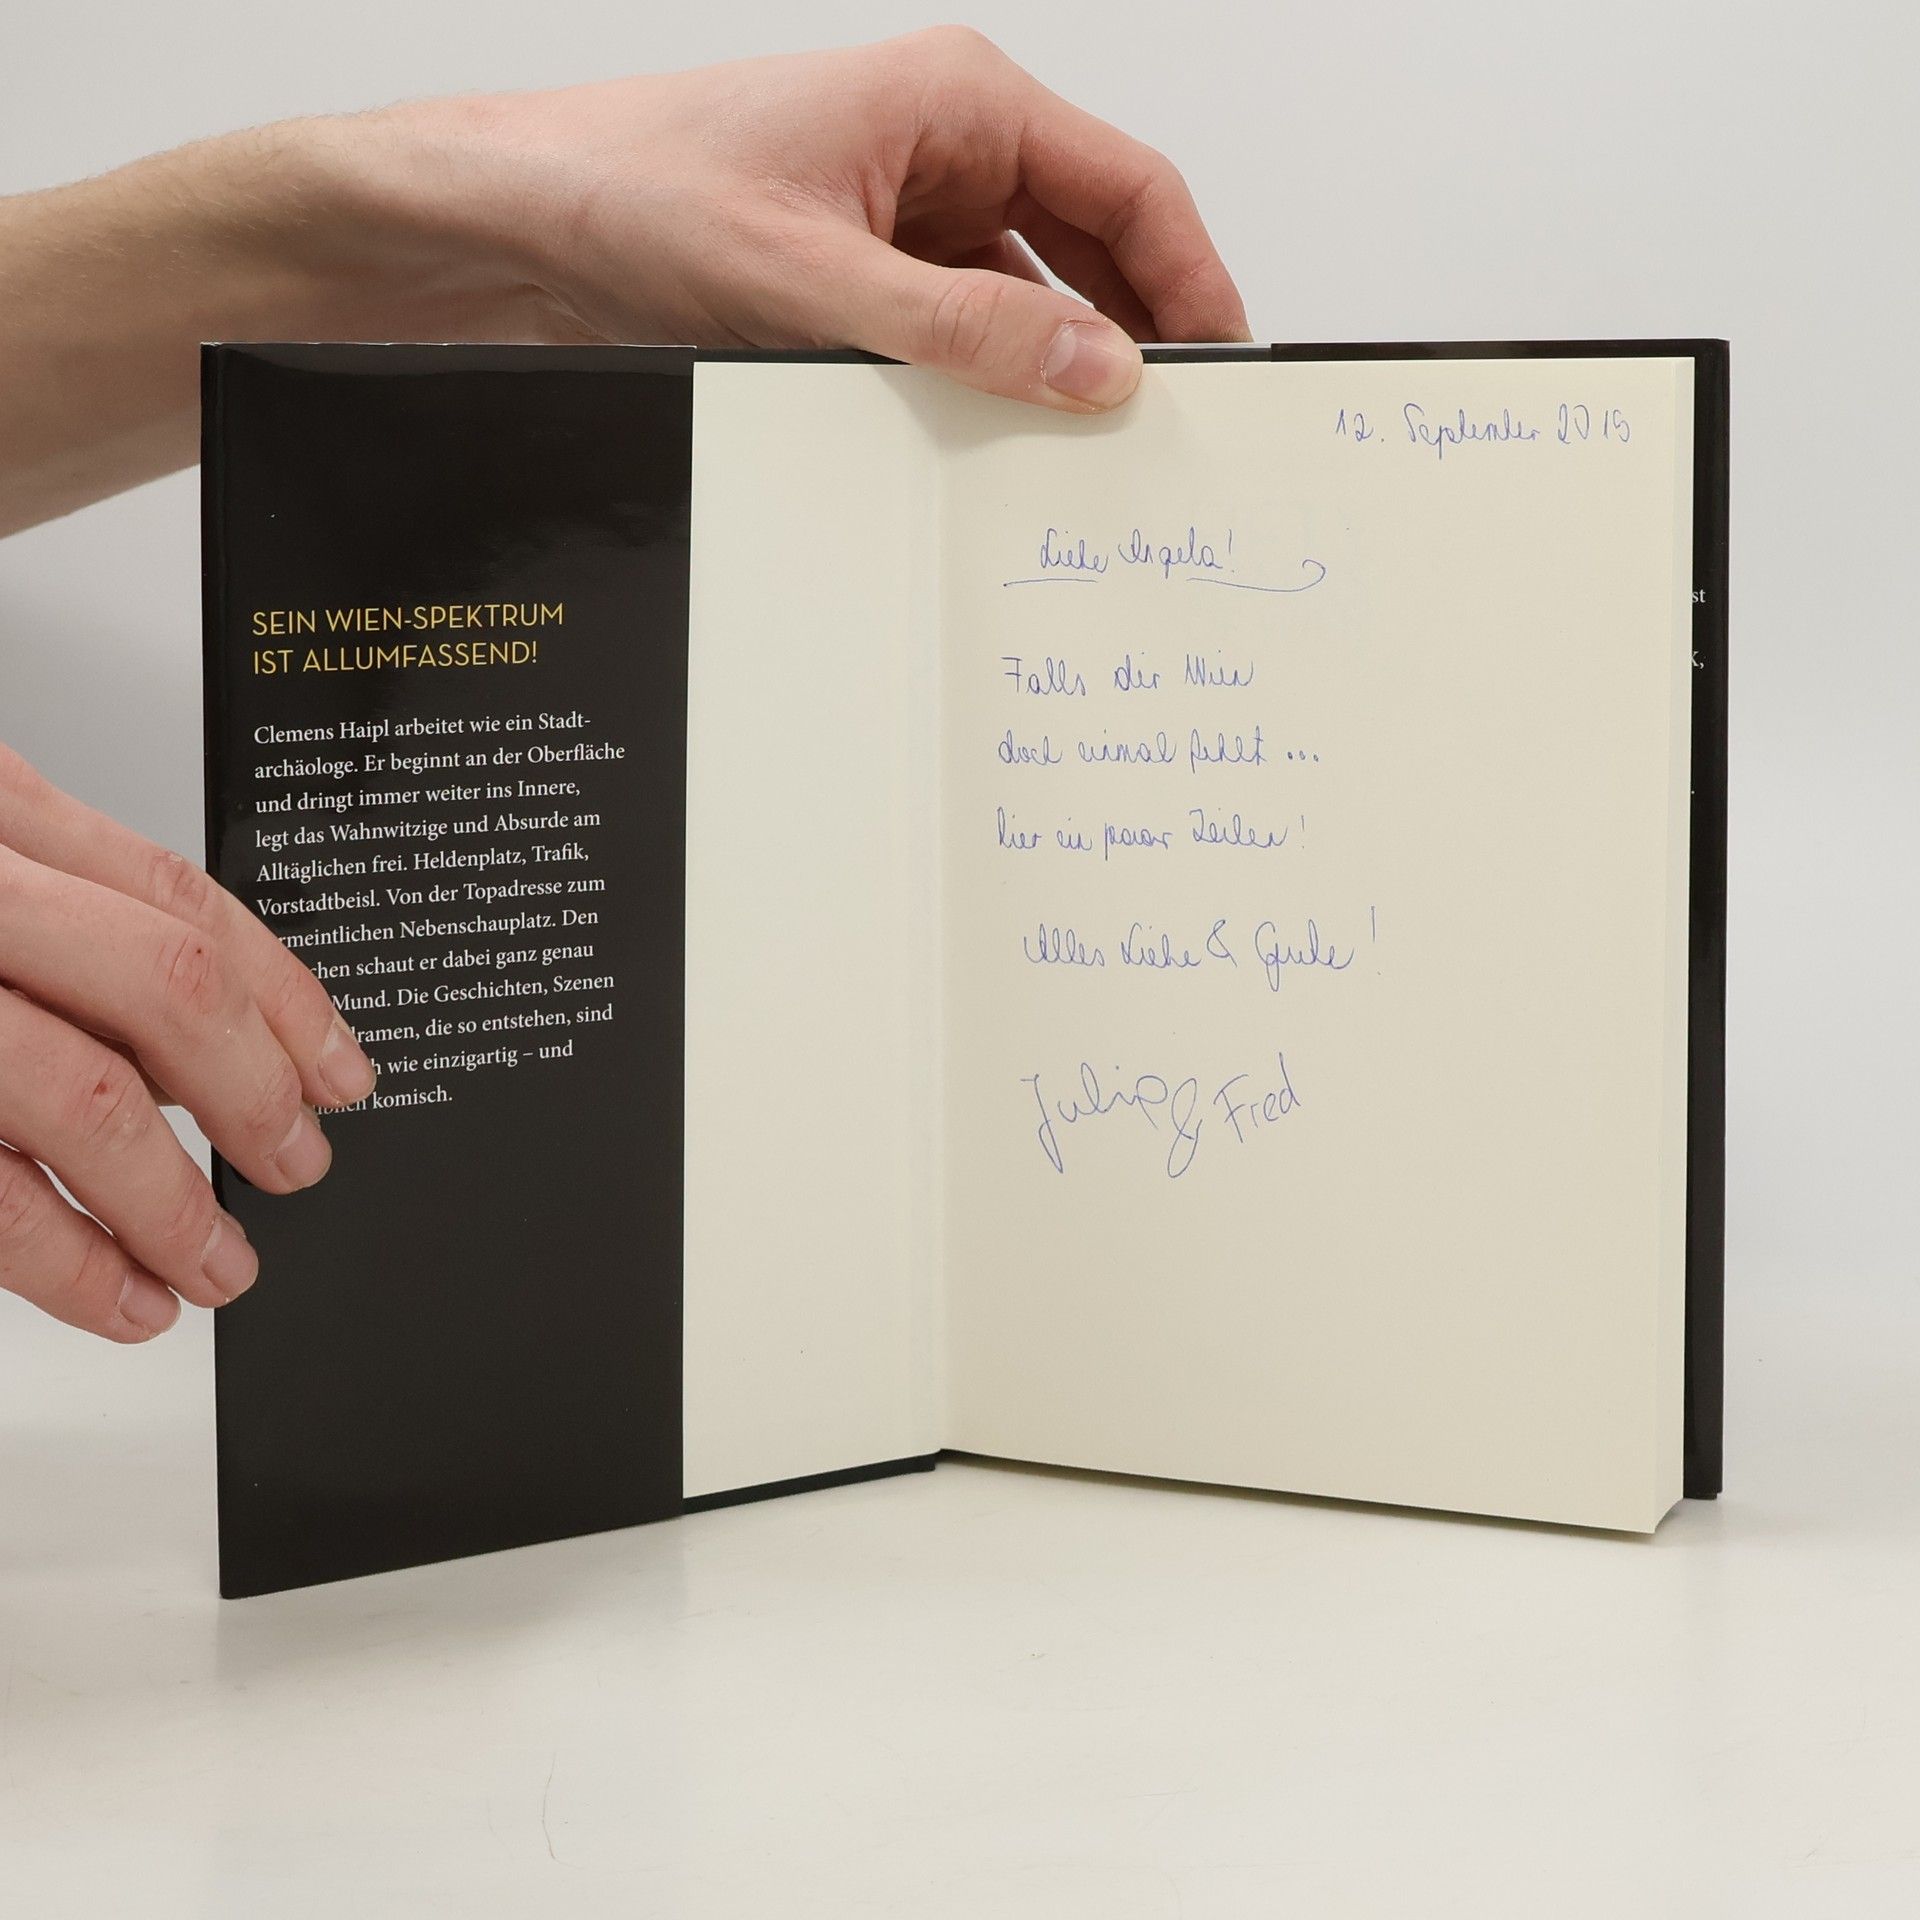 SEIN WIEN-SPEKTRUM
IST ALLUMFASSEND!
Clemens Haipl arbeitet wie ein Stadt-
archäologe. Er beginnt an der Oberfläche
und dringt immer weiter ins Innere,
legt das Wahnwitzige und Absurde am
Alltäglichen frei. Heldenplatz, Trafik,
Vorstadtbeisl. Von der Topadresse zum
rmeintlichen Nebenschauplatz. Den
chen schaut er dabei ganz genau
Mund. Die Geschichten, Szenen
dramen, die so entstehen, sind
h wie einzigartig – und
komisch.
12. September 2019
Liebe Angela!
Falls dir Wien
doch einmal fehlt ...
hier ein paar Zeilen!
Alles Liebe & Gute!
Julia & Fred
st
K,